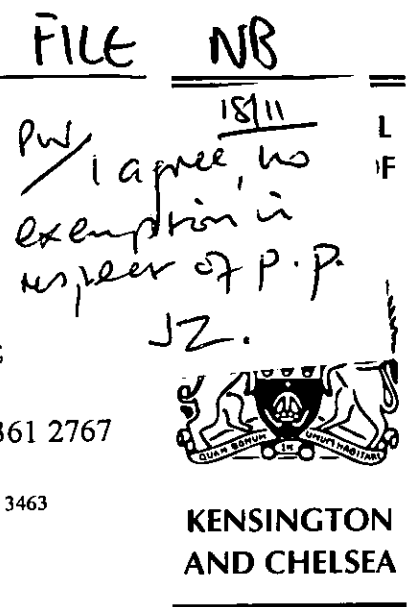 FILE NB
18/11
L
PW/ I agree, no
F
exemption in
respect of p.p.
JZ.
361 2767
QUAM BONUM IN UNUM HABITARE
3463
KENSINGTON
AND CHELSEA